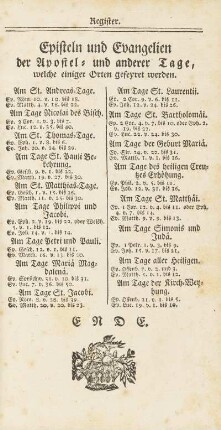 Register.
Episteln und Evangelien
der Apostel- und anderer Tage,
welche einiger Orten gefeyret werden.
Am St. Andreas-Tage.
Ep. Röm. 10. v. 10. bis 18.
Ev. Matth. 4. v. 18. bis 22.
Am Tage Nicolai des Bisch.
Ep. 2 Cor. 1. v. 3. bis 7.
Ev. Luc. 12. v. 35. bis 40.
Am St. Thomas-Tage.
Ep. Eph. 1. v. 3. bis
Ev. Joh. 20. v. 24. bis 29.
Am Tage St. Pauli Be-
kehrung.
Ep. Gesch. 9. v. 1. bis
Ev. Matth. 19. v. 27. bis
Am St. Matthias-Tage.
Ep. Gesch. 1. v. 15. bis
Ev. Matth. 11. v. 25. bis 30.
Am Tage Philippi und
Jacobi.
Ep. Eph. 2. v. 19. bis 22. oder Weish.
5. v. 1. bis
Ev. Joh. 14. v. 1. bis
Am Tage Petri und Pauli.
Ep. Gesch. 12. v. 1. bis 11.
Ev. Matth. 16. v. 13. bis
Am Tage Mariä Mag-
dalenä.
Ep. Sprüchw. 31. v. 10. bis 31.
Ev. Luc. 7. v. 36. bis 50.
Am Tage St. Jacobi.
Ep. Röm. 8. v. 28. bis
Ev. Matth. 20. v. 20. bis 23.
Am Tage St. Laurentii.
Ep. 2 Cor. 9. v. 6. bis
Ev. Joh. 12. v. 24. bis 26.
Am Tage St. Bartholomäi.
Ep. 2 Cor. 4. v. 7. bis 10. oder Eph.
2. v. 19. bis
Ev. Luc. 22. v. 24. bis 30.
Am Tage der Geburt Mariä.
Ep. Sir. 24. v. 22. bis 31.
Ev. Matth. 1. v. 1. bis 16.
Am Tage des heiligen Creu-
tzes Erhöhung.
Ep. Phil. 2. v. 5. bis
Ev. Joh. 12. v. 31. bis
Am Tage St. Matthäi.
Ep. 1 Cor. 12. v. 4. bis 11. oder Eph.
4. v. 7. bis
Ev. Matth. 9. v. 9. bis 13.
Am Tage Simonis und
Judä.
Ep. 1 Petr. 1. v. 3. bis 9.
Ev. Joh. 15. v. 17. bis 21.
Am Tage aller Heiligen.
Ep. Offenb. 7. v. 2. bis
Ev. Matth. 5. v. 1. bis 12.
Am Tage der Kirch-Wey-
hung.
Ep. Offenb. 21. v. 1. bis 5.
Ev. Luc. 19. v. 1. bis 10.
ENDE.